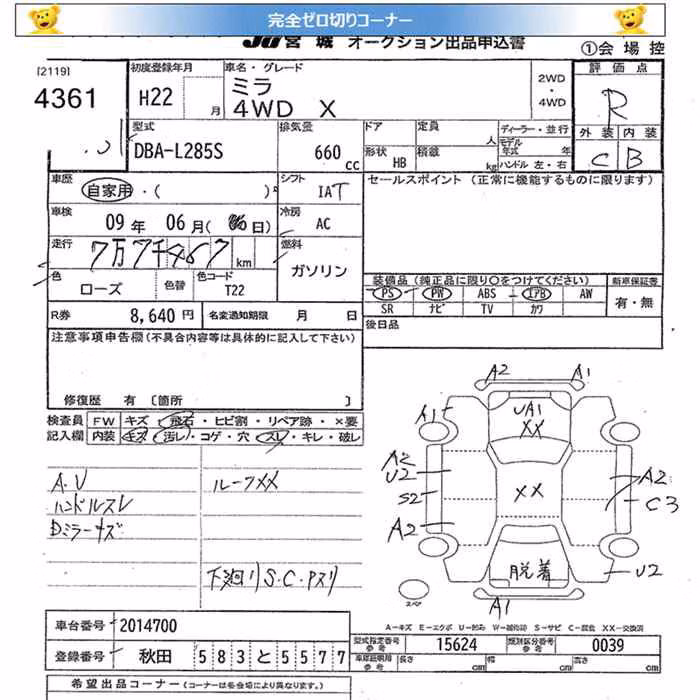 完全ゼロ切りコーナー
JU宮城 オークション出品申込書
①会場控
[2119]
4361
初度登録年月
H22 月
車名・グレード
ミラ
4WD X
2WD
・
4WD
評価点
R
外装 内装
C B
型式
DBA-L285S
排気量
660 cc
ドア
形状 HB
定員 人
積載 kg
ディーラー・並行
モデル年式 年
ハンドル 左・右
車歴
自家用・( )
シフト
IAT
セールスポイント (正常に機能するものに限ります)
車検
09年 06月( 日)
冷房
AC
走行
km
燃料
ガソリン
色
ローズ
色替
色コード
T22
装備品 (純正品に限り○をつけてください)
新車保証書
PS PW ABS エアB AW
SR ナビ TV カワ
有・無
R券
8,640円
名変通知期限 月 日
後日品
注意事項申告欄(不具合内容等は具体的に記入して下さい)
修復歴 有 〔箇所
検査員
記入欄
FW キズ・飛石・ヒビ割・リペア跡・×要
内装 キズ・汚レ・コゲ・穴・スレ・キレ・破レ
A.U
ハンドルスレ
Dミラーキズ
ルーフXX
下廻リS.C.Pスリ
A2 A1
A1 UA1
XX
A2
U2
S2
A2
XX
A2
C3
脱着
U2
A1
スペア
A-キズ E-エクボ U-凹み W-補修跡 S-サビ C-腐食 XX-交換済
車台番号
2014700
登録番号
秋田 583 と 5577
型式指定番号
15624
類別区分番号
0039
車庫証明用参考
長さ cm 幅 cm 高さ cm
希望出品コーナー (コーナーは各会場により異なります。)